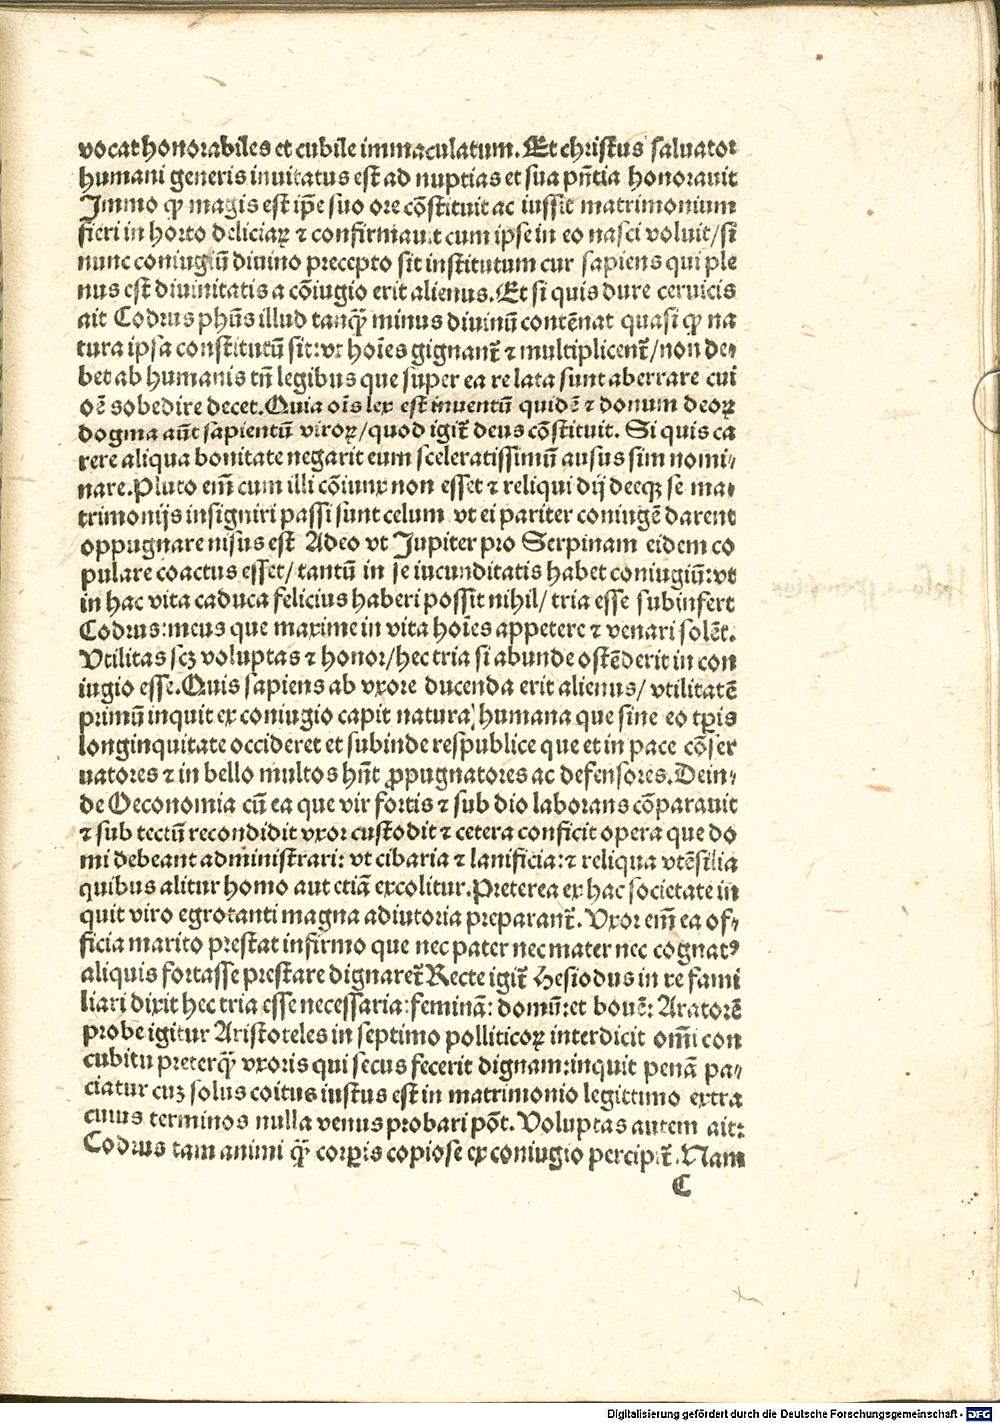 vocat honorabiles et cubile immaculatum. Et christus saluator
humani generis inuitatus est ad nuptias et sua pn̄tia honorauit
Immo qꝫ magis est ip̄e suo ore cōstituit ac iussit matrimonium
fieri in horto deliciaꝝ ⁊ confirmauit cum ipse in eo nasci voluit/ si
nunc coniugiū diuino precepto sit institutum cur sapiens qui ple
nus est diuinitatis a cōiugio erit alienus. Et si quis dure ceruicis
ait Codrus phūs illud tanqꝫ̄ minus diuinū contēnat quasi qꝫ na
tura ipsa constitutū sit: vt hoīes gignant̄ ⁊ multiplicent̄/ non de⸗
bet ab humanis tn̄ legibus que super ea re lata sunt aberrare cui
oē sobedire decet. Quia oīs lex est inuentū quidē ⁊ donum deoꝝ
dogma aūt sapientū viroꝝ/ quod igit̄ deus cōstituit. Si quis ca
rere aliqua bonitate negarit eum sceleratissimū ausus sim nomi⸗
nare. Pluto em̄ cum illi cōiunx non esset ⁊ reliqui dij deeqꝫ se ma⸗
trimonijs insigniri passi sunt celum vt ei pariter coniugē darent
oppugnare nisus est Adeo vt Jupiter pro Serpinam eidem co
pulare coactus esset/ tantū in se iucunditatis habet coniugiū: vt
in hac vita caduca felicius haberi possit nihil/ tria esse subinfert
Codrus: meus que maxime in vita hoīes appetere ⁊ venari solēt.
Vtilitas scꝫ voluptas ⁊ honor/ hec tria si abunde ostēderit in con
iugio esse. Quis sapiens ab vxore ducenda erit alienus/ vtilitatē
primū inquit ex coniugio capit natura humana que sine eo tꝑis
longinquitate occideret et subinde respublice que et in pace cōser
uatores ⁊ in bello multos hn̄t ꝓpugnatores ac defensores. Dein⸗
de Oeconomia cū ea que vir fortis ⁊ sub dio laborans cōparauit
⁊ sub tectū recondidit vxor custodit ⁊ cetera conficit opera que do
mi debeant administrari: vt cibaria ⁊ lanificia: ⁊ reliqua vtēsilia
quibus alitur homo aut etiā excolitur. Preterea ex hac societate in
quit viro egrotanti magna adiutoria preparant̄. Vxor em̄ ea of⸗
ficia marito prestat infirmo que nec pater nec mater nec cognatꝰ
aliquis fortasse prestare dignaret̄ Recte igit̄ Hesiodus in re fami
liari dixit hec tria esse necessaria: feminā: domū: et bouē: Aratorē
probe igitur Aristoteles in septimo polliticoꝝ interdicit om̄i con
cubitu preterqꝫ̄ vxoris qui secus fecerit dignam: inquit penā pa⸗
ciatur cuꝫ solus coitus iustus est in matrimonio legittimo extra
cuius terminos nulla venus probari pōt. Voluptas autem ait:
Codrus tam animi qꝫ̄ corꝑis copiose ex coniugio percipit̄. Nam
C
Digitalisierung gefördert durch die Deutsche Forschungsgemeinschaft - DFG